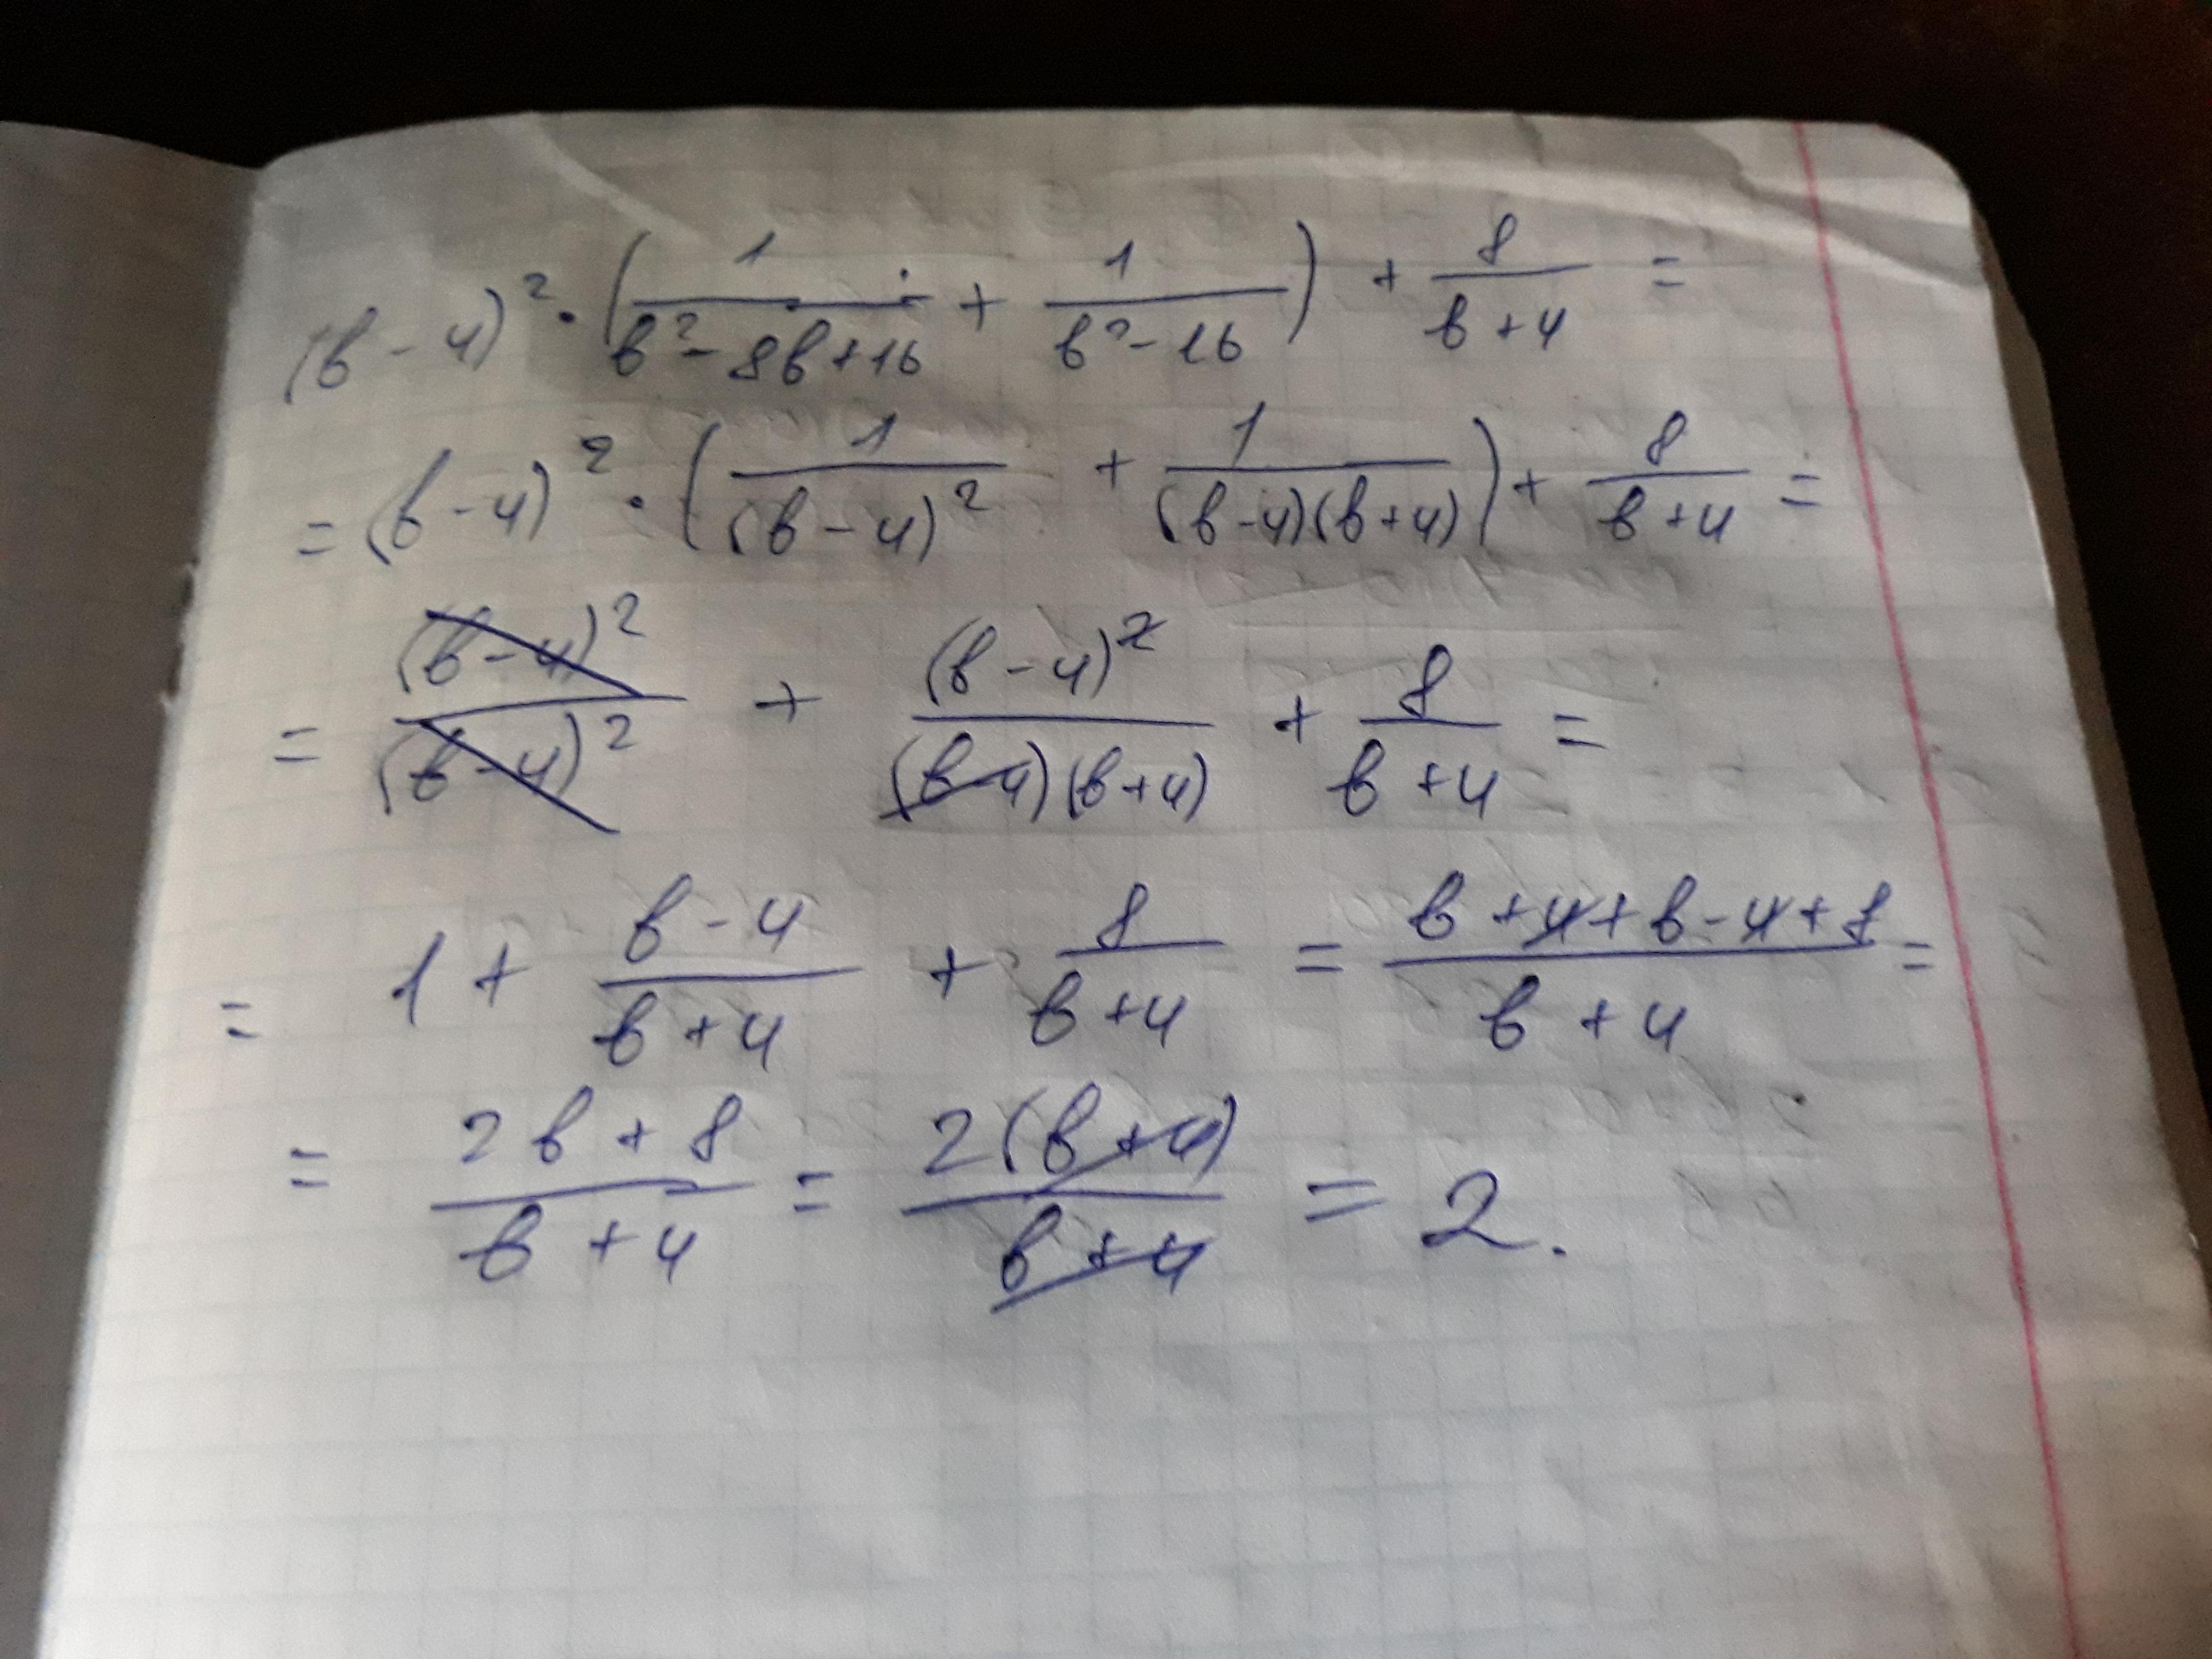 (b - 4)² · (1/(b² - 8b + 16) + 1/(b² - 16)) + 8/(b + 4) =
= (b - 4)² · (1/(b - 4)² + 1/((b - 4)(b + 4))) + 8/(b + 4) =
= (b - 4)²/(b - 4)² + (b - 4)²/((b - 4)(b + 4)) + 8/(b + 4) =
= 1 + (b - 4)/(b + 4) + 8/(b + 4) = (b + 4 + b - 4 + 8)/(b + 4) =
= (2b + 8)/(b + 4) = 2(b + 4)/(b + 4) = 2.